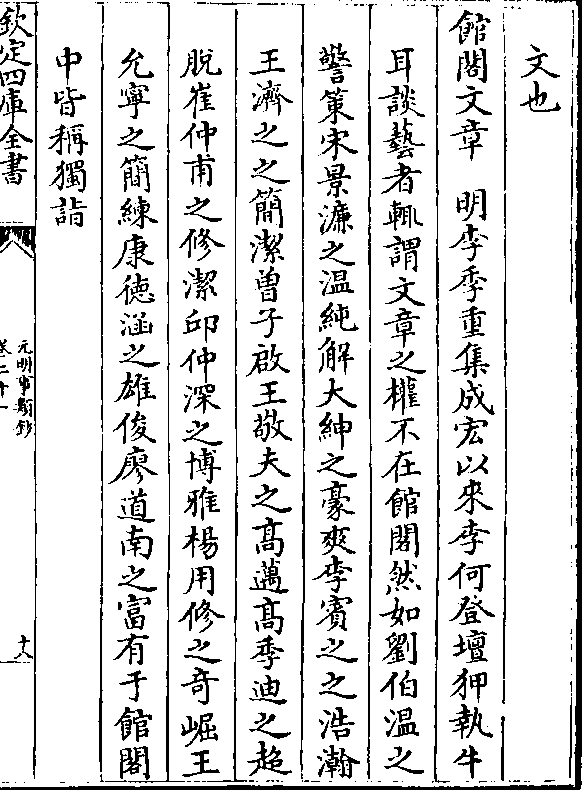 文也
館閣文章　明李季重集成宏以來李何登壇狎執牛
耳談藝者輒謂文章之權不在館閣然如劉伯温之
警策宋景濂之温純解大紳之豪爽李賓之之浩瀚
王濟之之簡潔曽子啟王敬夫之髙邁髙季迪之超
脱崔仲甫之修潔邱仲深之博雅楊用修之奇崛王
允寧之簡練康徳涵之雄俊廖道南之富有于館閣
中皆稱獨詣
欽定四庫全書
元明事類鈔
卷二十一
十八